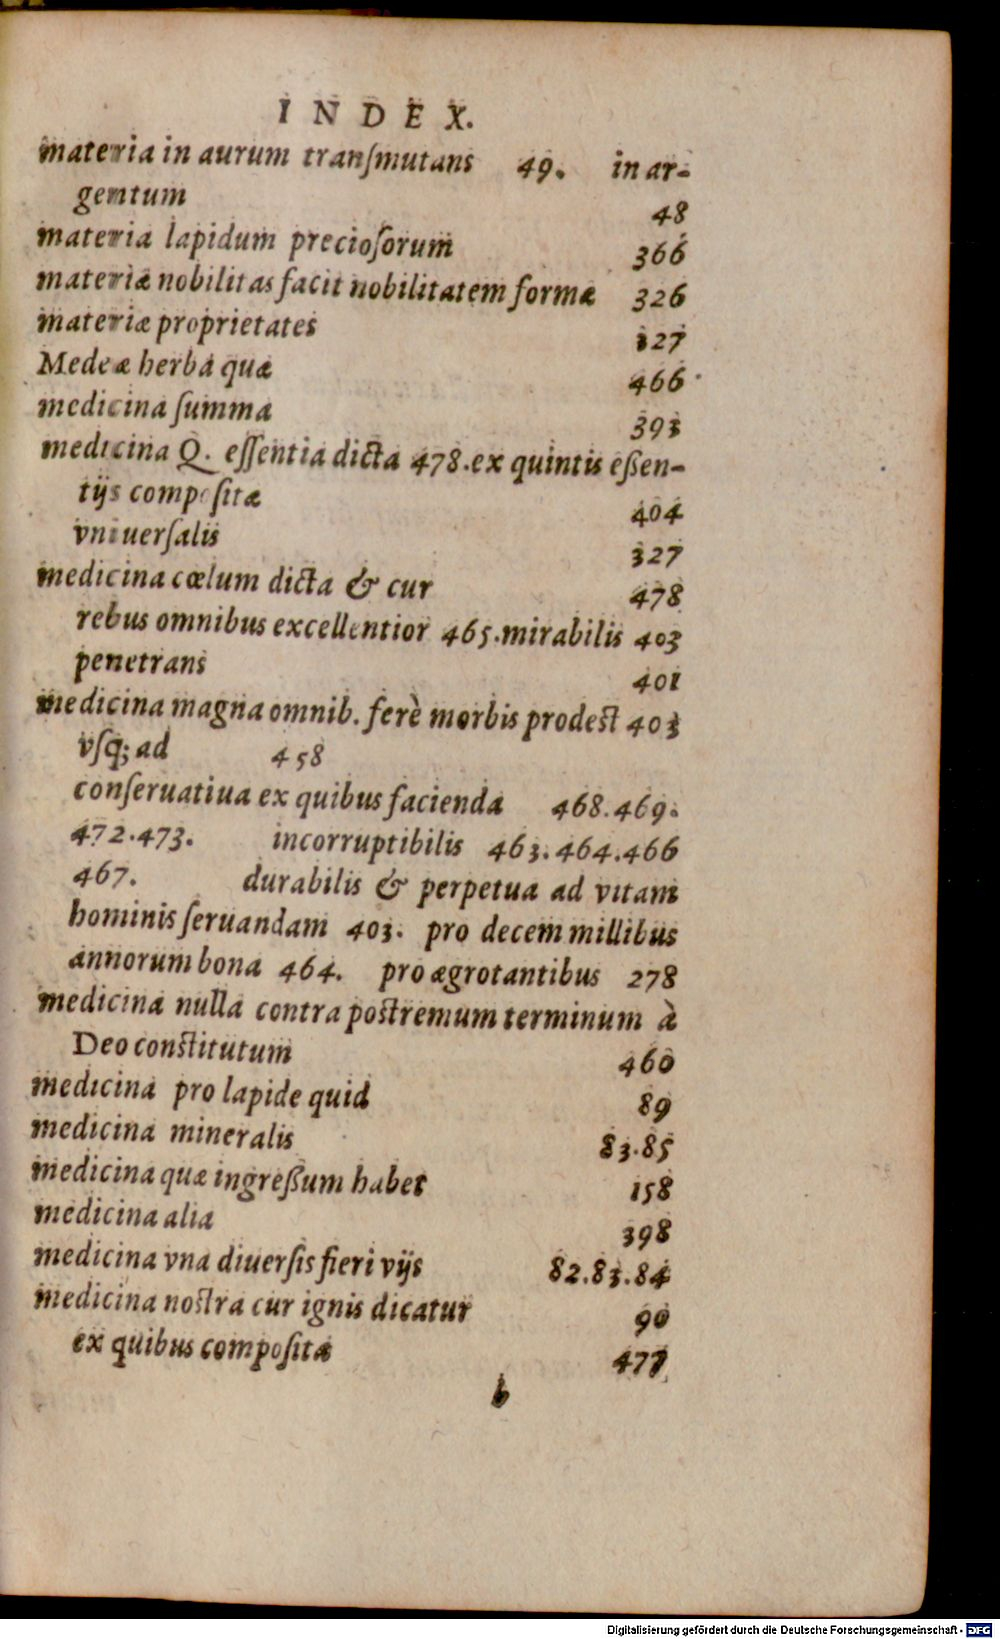 INDEX.
materia in aurum tranſmutans 49. in ar-
gentum 48
materia lapidum precioſorum 366
materiæ nobilitas facit nobilitatem formæ 326
materiæ proprietates 327
Medeæ herba quæ 466
medicina ſumma 393
medicina Q. eſſentia dicta 478. ex quintis eßen-
tijs compoſita 404
vniuerſalis 327
medicina cœlum dicta & cur 478
rebus omnibus excellentior 465. mirabilis 403
penetrans 401
medicina magna omnib. ferè morbis prodest 403
vſq; ad 458
conſeruatiua ex quibus facienda 468. 469.
472. 473. incorruptibilis 463. 464. 466
467. durabilis & perpetua ad vitam
hominis ſeruandam 403. pro decem millibus
annorum bona 464. pro ægrotantibus 278
medicina nulla contra postremum terminum à
Deo constitutum 460
medicina pro lapide quid 89
medicina mineralis 83. 85
medicina quæ ingreßum habet 158
medicina alia 398
medicina vna diuerſis fieri vijs 82. 83. 84
medicina nostra cur ignis dicatur 90
ex quibus compoſita 477
b
Digitalisierung gefördert durch die Deutsche Forschungsgemeinschaft - DFG